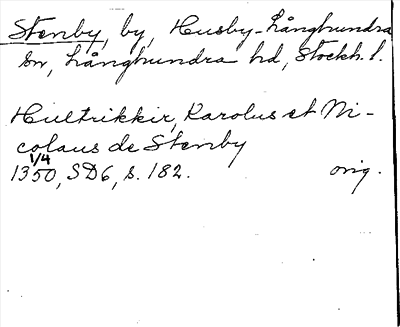 Stenby, by, Husby-Långhundra
sn, Långhundra hd, Stockh. l.
Hultrikkir, Karolus et Ni-
colaus de Stenby
1350 1/4, SD6, s. 182. orig.